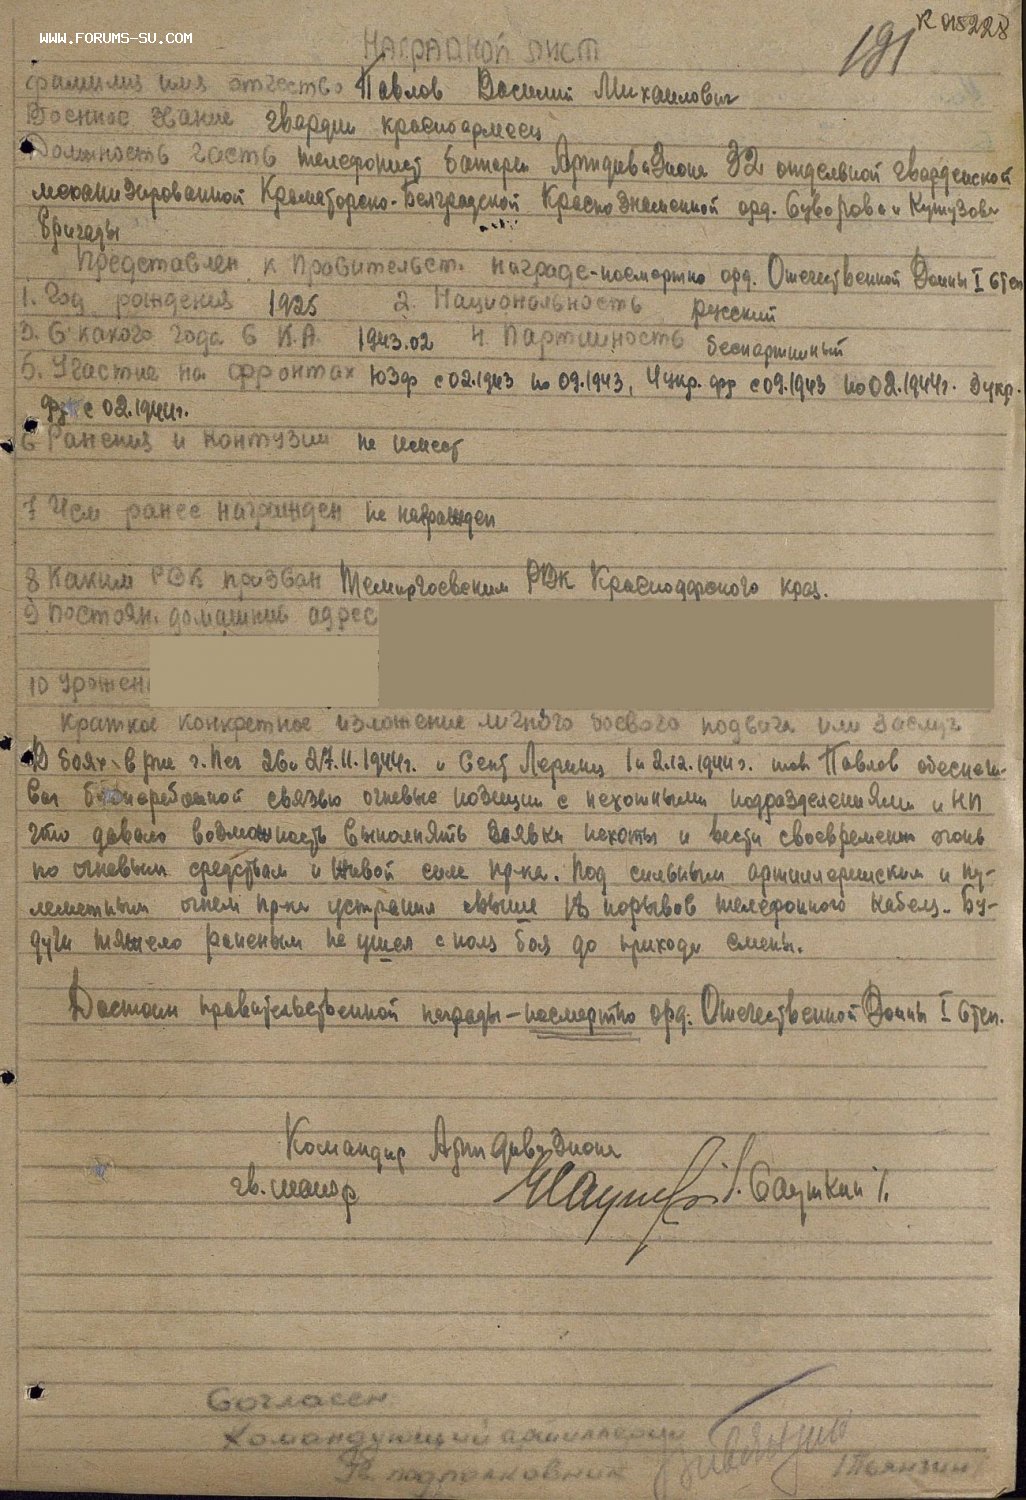 WWW.FORUMS-SU.COM
191
Наградной лист
фамилия имя отчество Павлов Василий Михайлович
Военное звание гвардии красноармеец
Должность часть телефонист батареи Артдивизиона 32 отдельной гвардейской
механизированной Краматорско-Белградской Краснознаменной орд. Суворова и Кутузова
бригады
Представлен к Правительст. награде-посмертно орд. Отечественной Войны I степ
1. Год рождения 1925 2. Национальность русский
3. С какого года в К.А. 1943.02 4. Партийность беспартийный
5. Участие на фронтах ЮЗф с 02.1943 по 09.1943, 4 укр. фр с 09.1943 по 02.1944г. 3 укр.
фр с 02.1944г.
6 Ранения и контузии не имеет
7 Чем ранее награжден не награжден
8 Каким РВК призван Темиргоевским РВК Краснодарского края.
9 Постоян. домашний адрес
10 Урожен
Краткое конкретное изложение личного боевого подвига или заслуг
В боях в р-не г. Печ 26 и 27.11.1944г. и Сент Леринц 1 и 2.12.1944г. тов Павлов обеспечи-
вал бесперебойной связью огневые позиции с пехотными подразделениями и НП
что давало возможность выполнять заявки пехоты и вести своевременн огонь
по огневым средствам и живой силе пр-ка. Под сильным артиллерийским и пу-
леметным огнем пр-ка устранил свыше 18 порывов телефонного кабеля. Бу-
дучи тяжело раненым не ушел с поля боя до прихода смены.
Достоин правительственной награды-посмертно орд. Отечественной Войны I степ.
Командир Артдивизиона
гв. майор /. Саушкин /.
Согласен
Командующий артиллерии
Гв подполковник /Пьянзин/